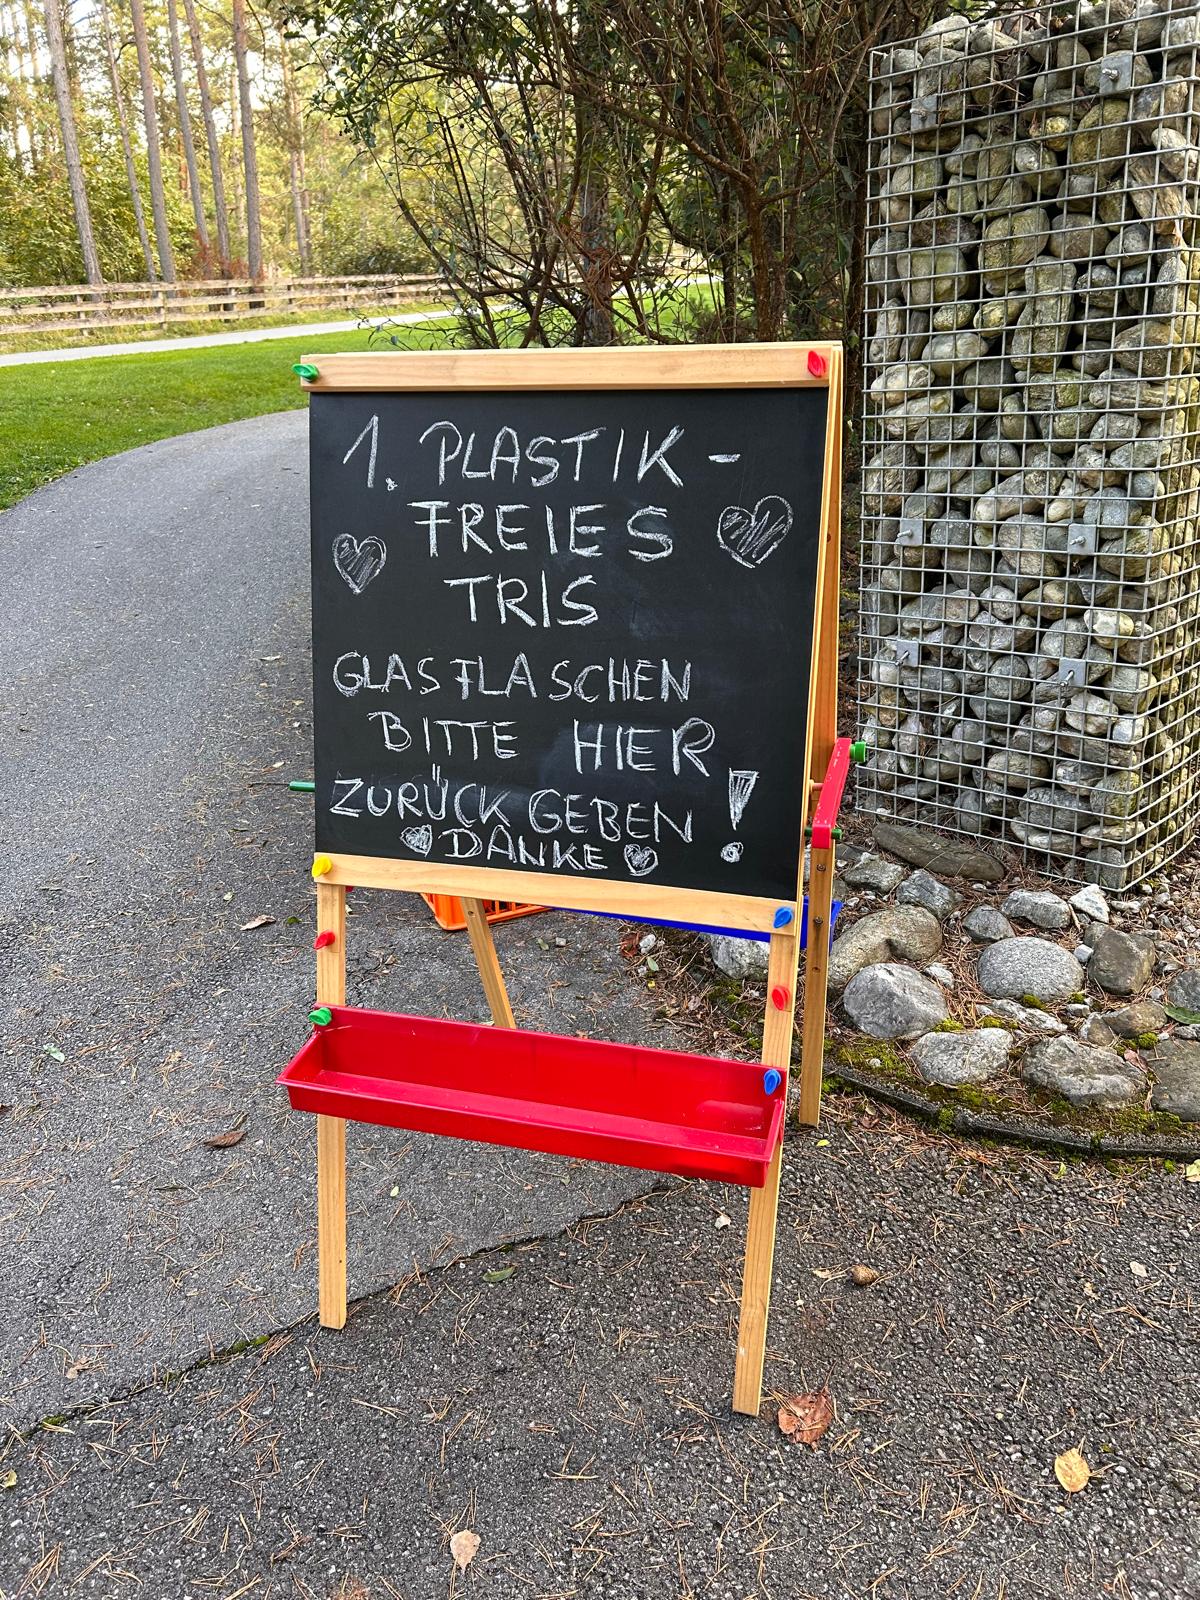 1. PLASTIK-
FREIES
TRIS
GLASFLASCHEN
BITTE HIER
ZURÜCK GEBEN!
DANKE